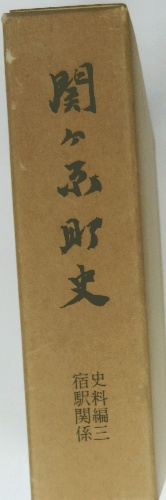 関ケ原町史
史料編三
宿駅関係